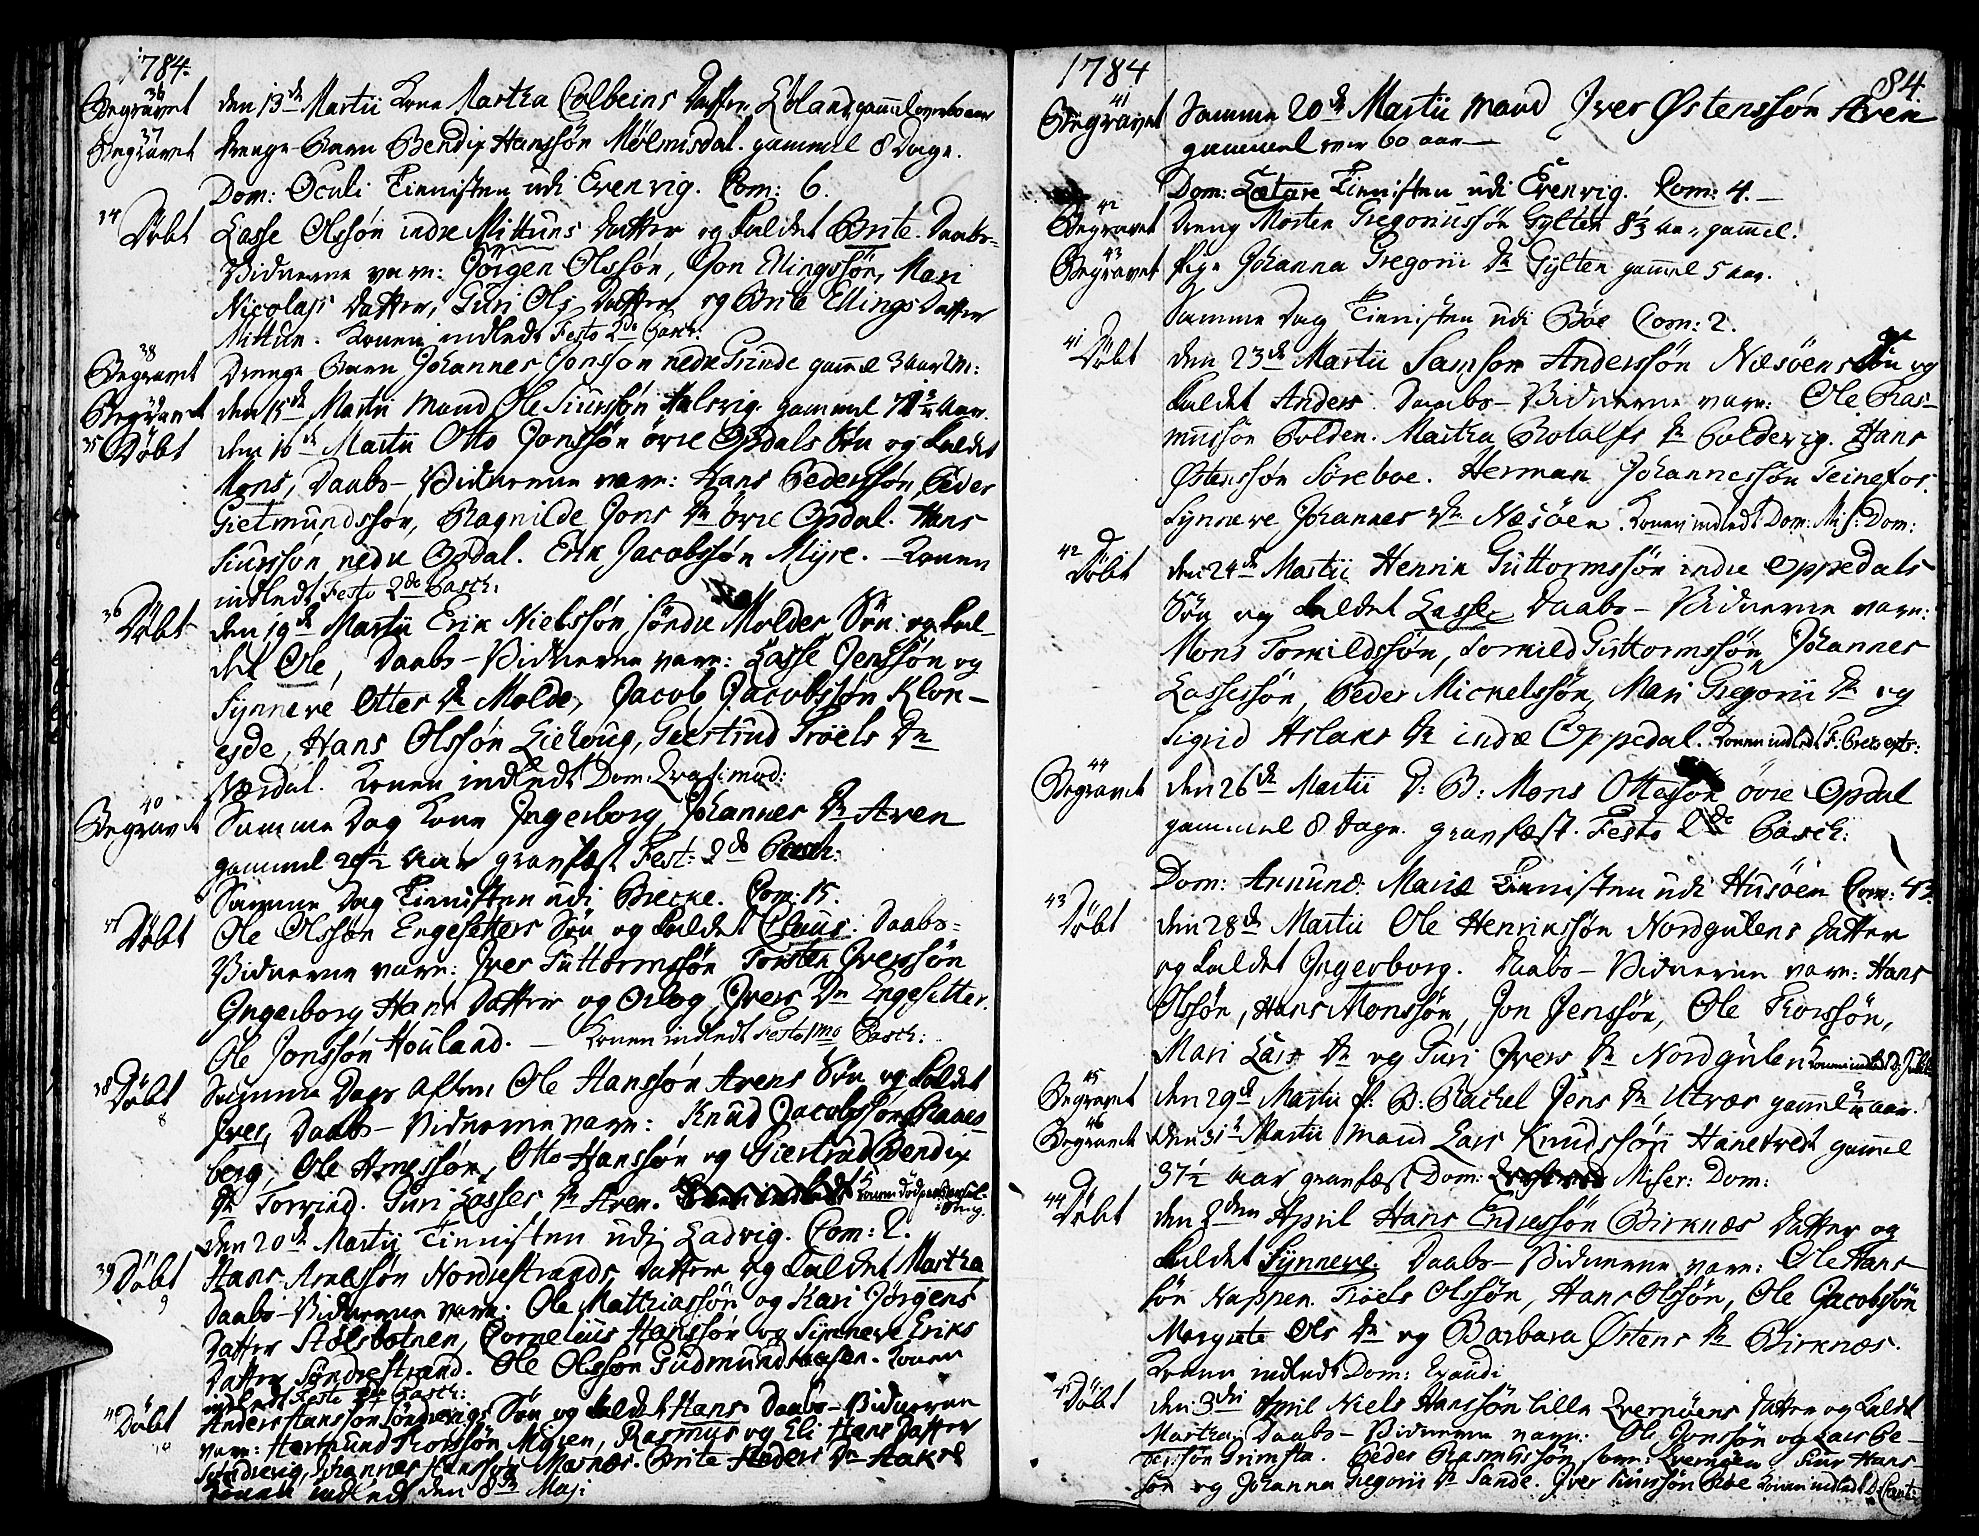 1784.
36 Begravet den 13de Martii Kone Martha Colbeins Datter Eoland, gammel over 60 aar
37 Begravet Drenge Barn Bendix Hanssøn Mølmisdal. gammel 8 Dage.
Dom: Oculi Tienisten udi Evenvig. Com: 6.
34 Døbt Lasse Olssøn indre Mittuns Datter og kaldet Brite. Daabs-
Vidnerne vare: Jørgen Olssøn, Jon Ellingssøn, Mari
Nicolajs Datter, Guri Ols Datter og Brite Ellings Datter
Mittun. Konen indledt Festo 2de Pasch:
38 Begravet Drenge Barn Johannes Jonssøn nedre Grinde gammel 3 aar 2 M:
39 Begravet den 15de Martii Mand Ole Siurssøn Halsvig gammel aar.
35 Døbt den 16de Martii Otto Jonssøn øvre Opdals Søn og kaldet
Mons, Daabs-Vidnerne vare: Hans Pederssøn, Peder
Gietmundssøn, Ragnilde Jons Dr øvre Opdal. Hans
Siurssøn nedre Opdal. Erik Jacobssøn Myre. - Konen
indledt Festo 2de Pasch:
36 Døbt den 19de Martii Erik Nielssøn søndre Moldes Søn og kal-
det Ole, Daabs-Vidnerne vare: Lasse Jenssøn og
Synneve Otters Dr Molde, Jacob Jacobssøn Klon-
ejde, Hans Olssøn, Giertrud Troels Dr
Nærdal. Konen indledt Dom: Qvasimod:
40 Begravet Samme Dag Kone Ingerborg Johannes Dr Aven
gammel 29½ aar grafæst Fest: 2de Pasch:
Samme Dag Tienisten udi Brecke. Com: 15.
37 Døbt Ole Olssøn Engesetters Søn og kaldet Claus. Daabs-
Vidnerne vare: Iver Guttormssøn Torsten Iverssøn
Ingerborg Hans Datter og Orlog Ivers Dr Engesetter.
Ole Jonssøn Houland. - Konen indledt Festo 1mo Pasch:
38 Døbt 8 Samme Dags Aften Ole Hanssøn Avens Søn og kaldet
Iver, Daabs-Vidnerne vare: Knud Jacobssøn
berg, Ole Arnessøn, Otto Hanssøn og Giertrud Bendix
Dr Torvind. Guri Lasses Dr Aven. Konen døde
den 20de Martii Tienisten udi Ladvig. Com: 2.
39 Døbt 9 Hans Arnessøn Nordrestrands Datter og kaldet Martha
Daabs-Vidnerne vare: Ole Matthiassøn og Kari Jørgens
Datter Stølsbotnen, Cornelius Hanssøn og Synneve Eriks
Datter Søndrestrand. Ole Olssøn Gudmund. Konen
indledt Festo Pasch:
40 Døbt 10 Anders Hanssøn Søndrevigs Søn og kaldet Hans. Daabs-Vidnerne
vare: Hartmund Thorssøn Myren, Rasmus og Eli Hans Datter
Søndrevig, Johannes Hanssøn Masnæs. Brite Peders Dr
Konen indledt den 8de Maj:
1784
84
41 Begravet Samme 20de Martii Mand Iver Østenssøn Aven
gammel over 60 aar -
Dom: Lætare Tienisten udi Evenvig. Com: 4. -
42 Begravet Dreng Morten Gregoriussøn Gylten 8½ aar gammel.
43 Begravet Pige Johanna Gregorii Dr Gylten gammel 5 aar.
Samme Dag Tienisten udi Bøe Com: 2.
41 Døbt den 23de Martii Samson Anderssøn Næsøens Søn og
kaldet Anders. Daabs-Vidnerne vare: Ole Ras-
mussøn Polden. Martha Botolfs Dr Poldevig. Hans
Østenssøn Søreboe. Herman Johannessøn Teinefos.
Synneve Johannes Dr Næsøen. Konen indledt Dom: Mis: Dom:
42 Døbt den 24de Martii Henrik Guttormssøn indre Oppedals
Søn og kaldet Lasse. Daabs-Vidnerne vare:
Mons Tormildssøn, Tormild Guttormssøn, Johannes
Lassessøn, Peder Mickelssøn, Mari Gregorii Dr og
Sigrid Aslaks Dr indre Oppedal. Konen indledt F.
44 Begravet den 26de Martii D: B: Mons Ottessøn øvre Opdal
gammel 8 Dage. grafæst. Festo 2de Pasch:
Dom: Annunc: Mariæ Tienisten udi Husøen Com: 43.
43 Døbt den 28de Martii Ole Henrikssøn Nordgulens Datter
og kaldet Ingerborg. Daabs-Vidnerne vare: Hans
Olssøn, Hans Monssøn, Jon Jenssøn, Ole Thorssøn,
Mari Lars Dr og Guri Ivers Dr Nordgulen Konen indledt
45 Begravet den 29de Martii P: B: Rachel Jens Dr Utvær gammel aar.
46 Begravet den 31te Martii Mand Lars Knudssøn gammel
37½ aar grafæst Dom: Miser: Dom:
44 Døbt den 2den April Hans Endressøn Birknæs Datter og
kaldet Synneve. Daabs-Vidnerne vare: Ole Hans-
søn Nappen. Troels Olssøn, Hans Olssøn, Ole Jacobssøn
Margrete Ols Dr og Barbara Østens Dr Birknæs.
Konen indledt Dom: Exaudi
45 Døbt den 3die April Niels Hanssøn lille Qvernøens Datter og kaldet
Martha. Daabs-Vidnerne vare: Ole Jonssøn og Lars Pe-
derssøn Grimsta. Peder Rasmussøn store Qvernøen Siur Hans-
søn og Johanna Gregorii Dr Sande. Iver Siurssøn Bøe Konen indledt D: Cant: